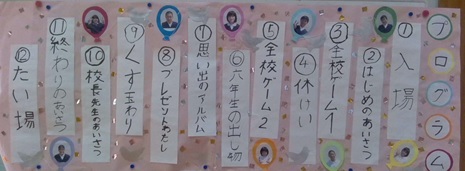 プログラム
①入場
②はじめのあいさつ
③全校ゲーム1
④休けい
⑤全校ゲーム2
⑥六年生の出し物
⑦思い出のアルバム
⑧プレゼントわたし
⑨くす玉わり
⑩校長先生のあいさつ
⑪終わりのあいさつ
⑫たい場